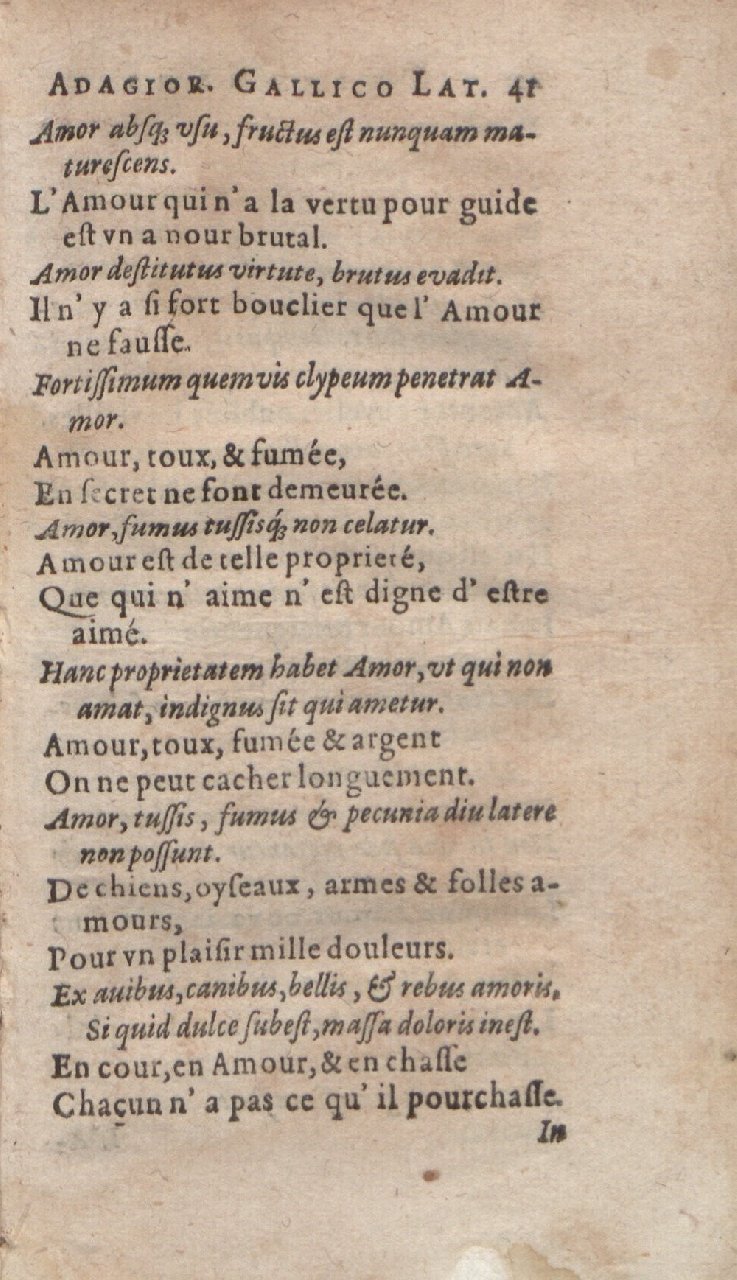 ADAGIOR. GALLICO LAT. 41
Amor absq; vsu, fructus est nunquam ma-
turescens.
L'Amour qui n'a la vertu pour guide
est vn a nour brutal.
Amor destitutus virtute, brutus evadit.
Il n' y a si fort bouclier que l' Amour
ne fausse.
Fortissimum quemvis clypeum penetrat A-
mor.
Amour, toux, & fumée,
En secret ne font demeurée.
Amor, fumus tussisq; non celatur.
Amour est de telle proprieté,
Que qui n' aime n' est digne d' estre
aimé.
Hanc proprietatem habet Amor, vt qui non
amat, indignus sit qui ametur.
Amour, toux, fumée & argent
On ne peut cacher longuement.
Amor, tussis, fumus & pecunia diu latere
non possunt.
De chiens, oyseaux, armes & folles a-
mours,
Pour vn plaisir mille douleurs.
Ex auibus, canibus, bellis, & rebus amoris,
Si quid dulce subest, massa doloris inest.
En cour, en Amour, & en chasse
Chaçun n' a pas ce qu' il pourchasse.
In